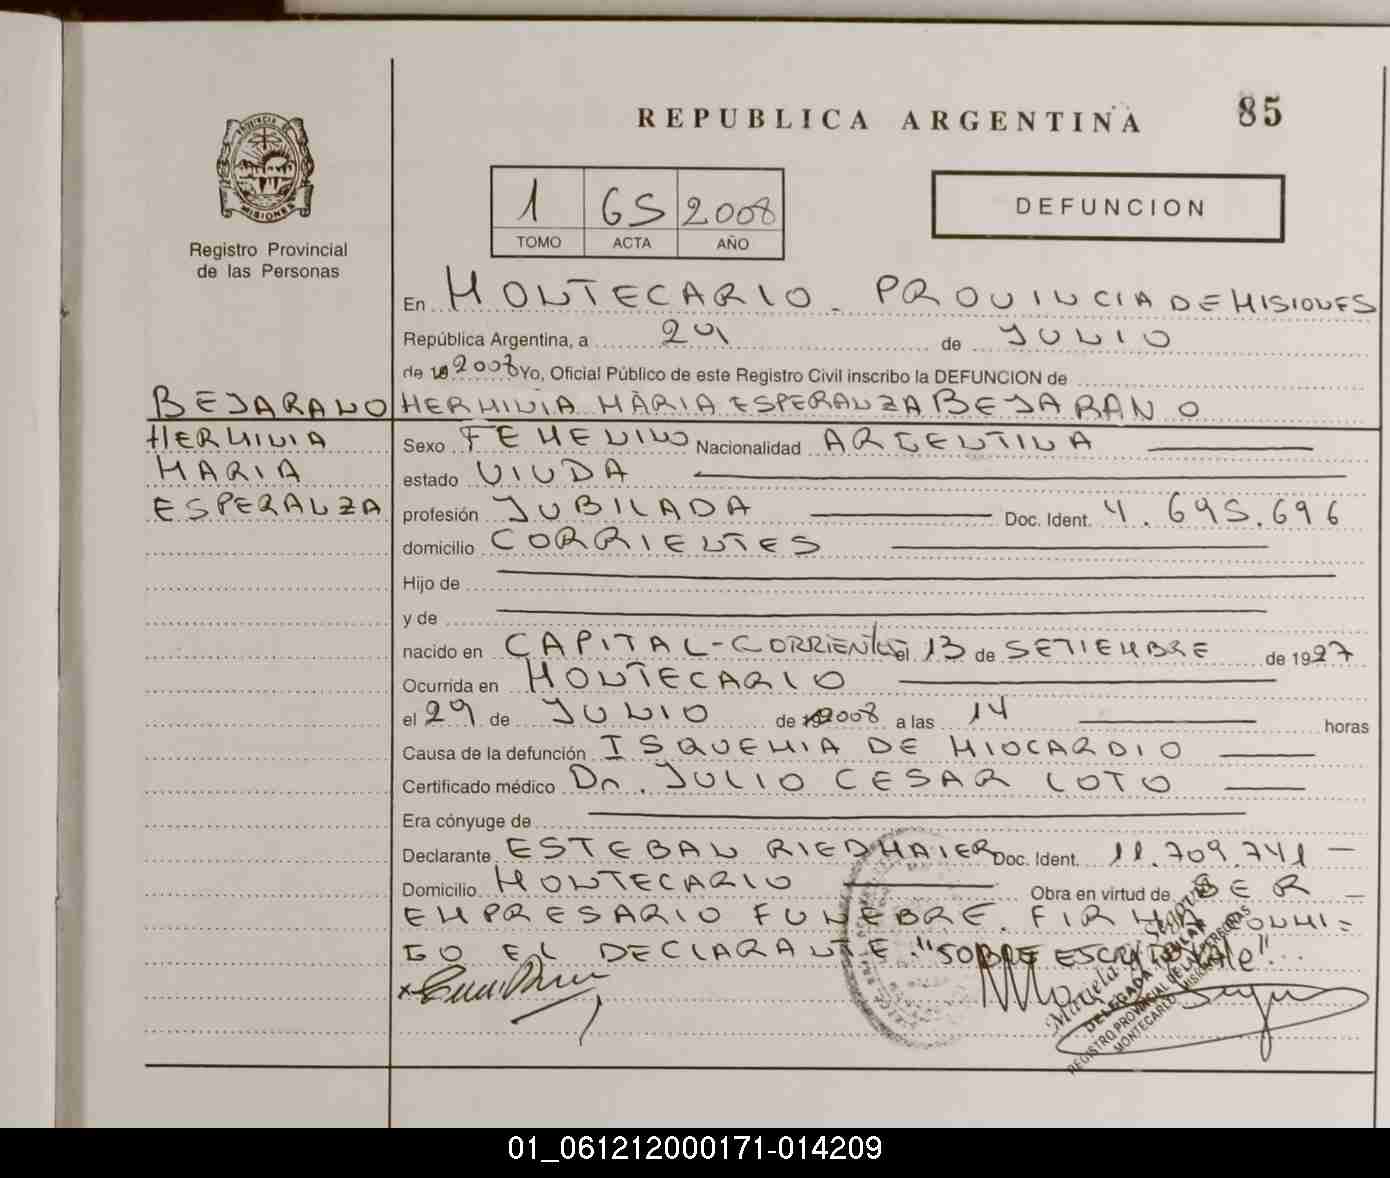 85
REPUBLICA ARGENTINA
PROVINCIA DE
MISIONES
Registro Provincial
de las Personas
1 65 2008
TOMO ACTA AÑO
DEFUNCION
En MONTECARLO - PROVINCIA DE MISIONES
República Argentina, a 29 de JULIO
de 2008 Yo, Oficial Público de este Registro Civil inscribo la DEFUNCION de
BEJARANO HERMINIA MARIA ESPERANZA BEJARANO
HERMINIA
MARIA
ESPERANZA
Sexo FEMENINO Nacionalidad ARGENTINA
estado VIUDA
profesión JUBILADA Doc. Ident. 4.695.696
domicilio CORRIENTES
Hijo de
y de
nacido en CAPITAL-CORRIENTES el 13 de SETIEMBRE de 1927
Ocurrida en MONTECARLO
el 29 de JULIO de 2008 a las 14 horas
Causa de la defunción ISQUEMIA DE MIOCARDIO
Certificado médico Dr. JULIO CESAR LOTO
Era cónyuge de
Declarante ESTEBAN RIEDMAIER Doc. Ident. 11.709.741 -
Domicilio MONTECARLO Obra en virtud de SER -
EMPRESARIO FUNEBRE. FIRMA CONMI=
GO EL DECLARANTE. "SOBRE ESCRITO VALE"
DELEGADA TITULAR
REGISTRO PROVINCIAL DE LAS PERSONAS
MONTECARLO MISIONES
01_061212000171-014209